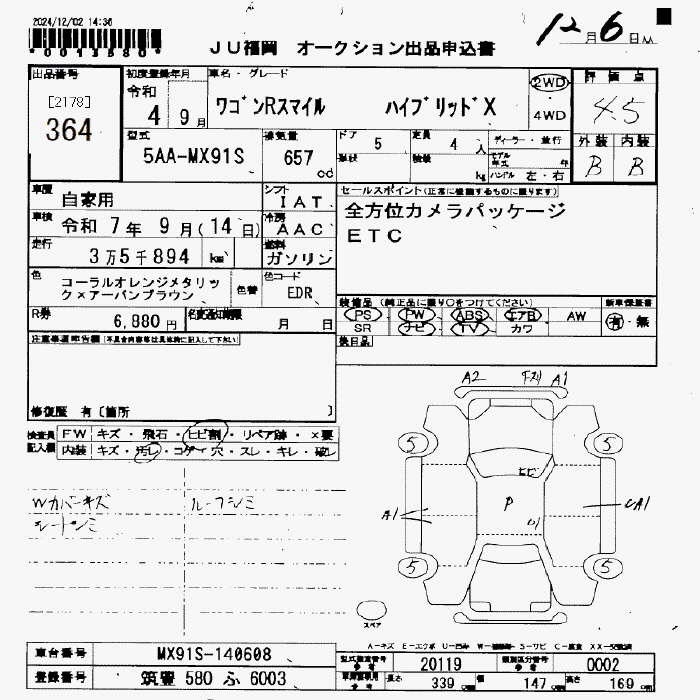 2024/12/02 14:36
*0013580*
JU福岡 オークション出品申込書
12月6日
出品番号
[2178]
364
初度登録年月
令和
4 9月
車名・グレード
ワゴンRスマイル ハイブリッドX
2WD
4WD
評価点
4.5
外装 内装
B B
型式
5AA-MX91S
排気量
657
cc
ドア 5
形状
定員 4 人
積載 kg
ディーラー・並行
モデル年式 年
ハンドル 左・右
車歴
自家用
車検
令和 7年 9月(14日)
走行
3万5千894 km
シフト
IAT
冷房
AAC
燃料
ガソリン
セールスポイント(正常に機能するものに限ります)
全方位カメラパッケージ
ETC
色
コーラルオレンジメタリック×アーバンブラウン
色替
色コード
EDR
R券
6,880円
名変通知期限
月 日
装備品 (純正品に限り○をつけてください)
新車保証書
PS PW ABS エアB AW
SR ナビ TV カワ
有・無
後日品
注意事項申告欄(不具合内容等は具体的に記入して下さい)
修復歴 有〔箇所 〕
検査員記入欄
FW キズ・飛石・ヒビ割・リペア跡・×要
内装 キズ・汚レ・コゲ・穴・スレ・キレ・破レ
Wカバーキズ
シートシミ
ルーフシミ
A2 A1
5 5
ヒビ
P
A1
5 5
スペア
車台番号 MX91S-140608
登録番号 筑豊 580 ふ 6003
型式指定番号 参考 20119
類別区分番号 参考 0002
長さ 339
幅 147
高さ 169